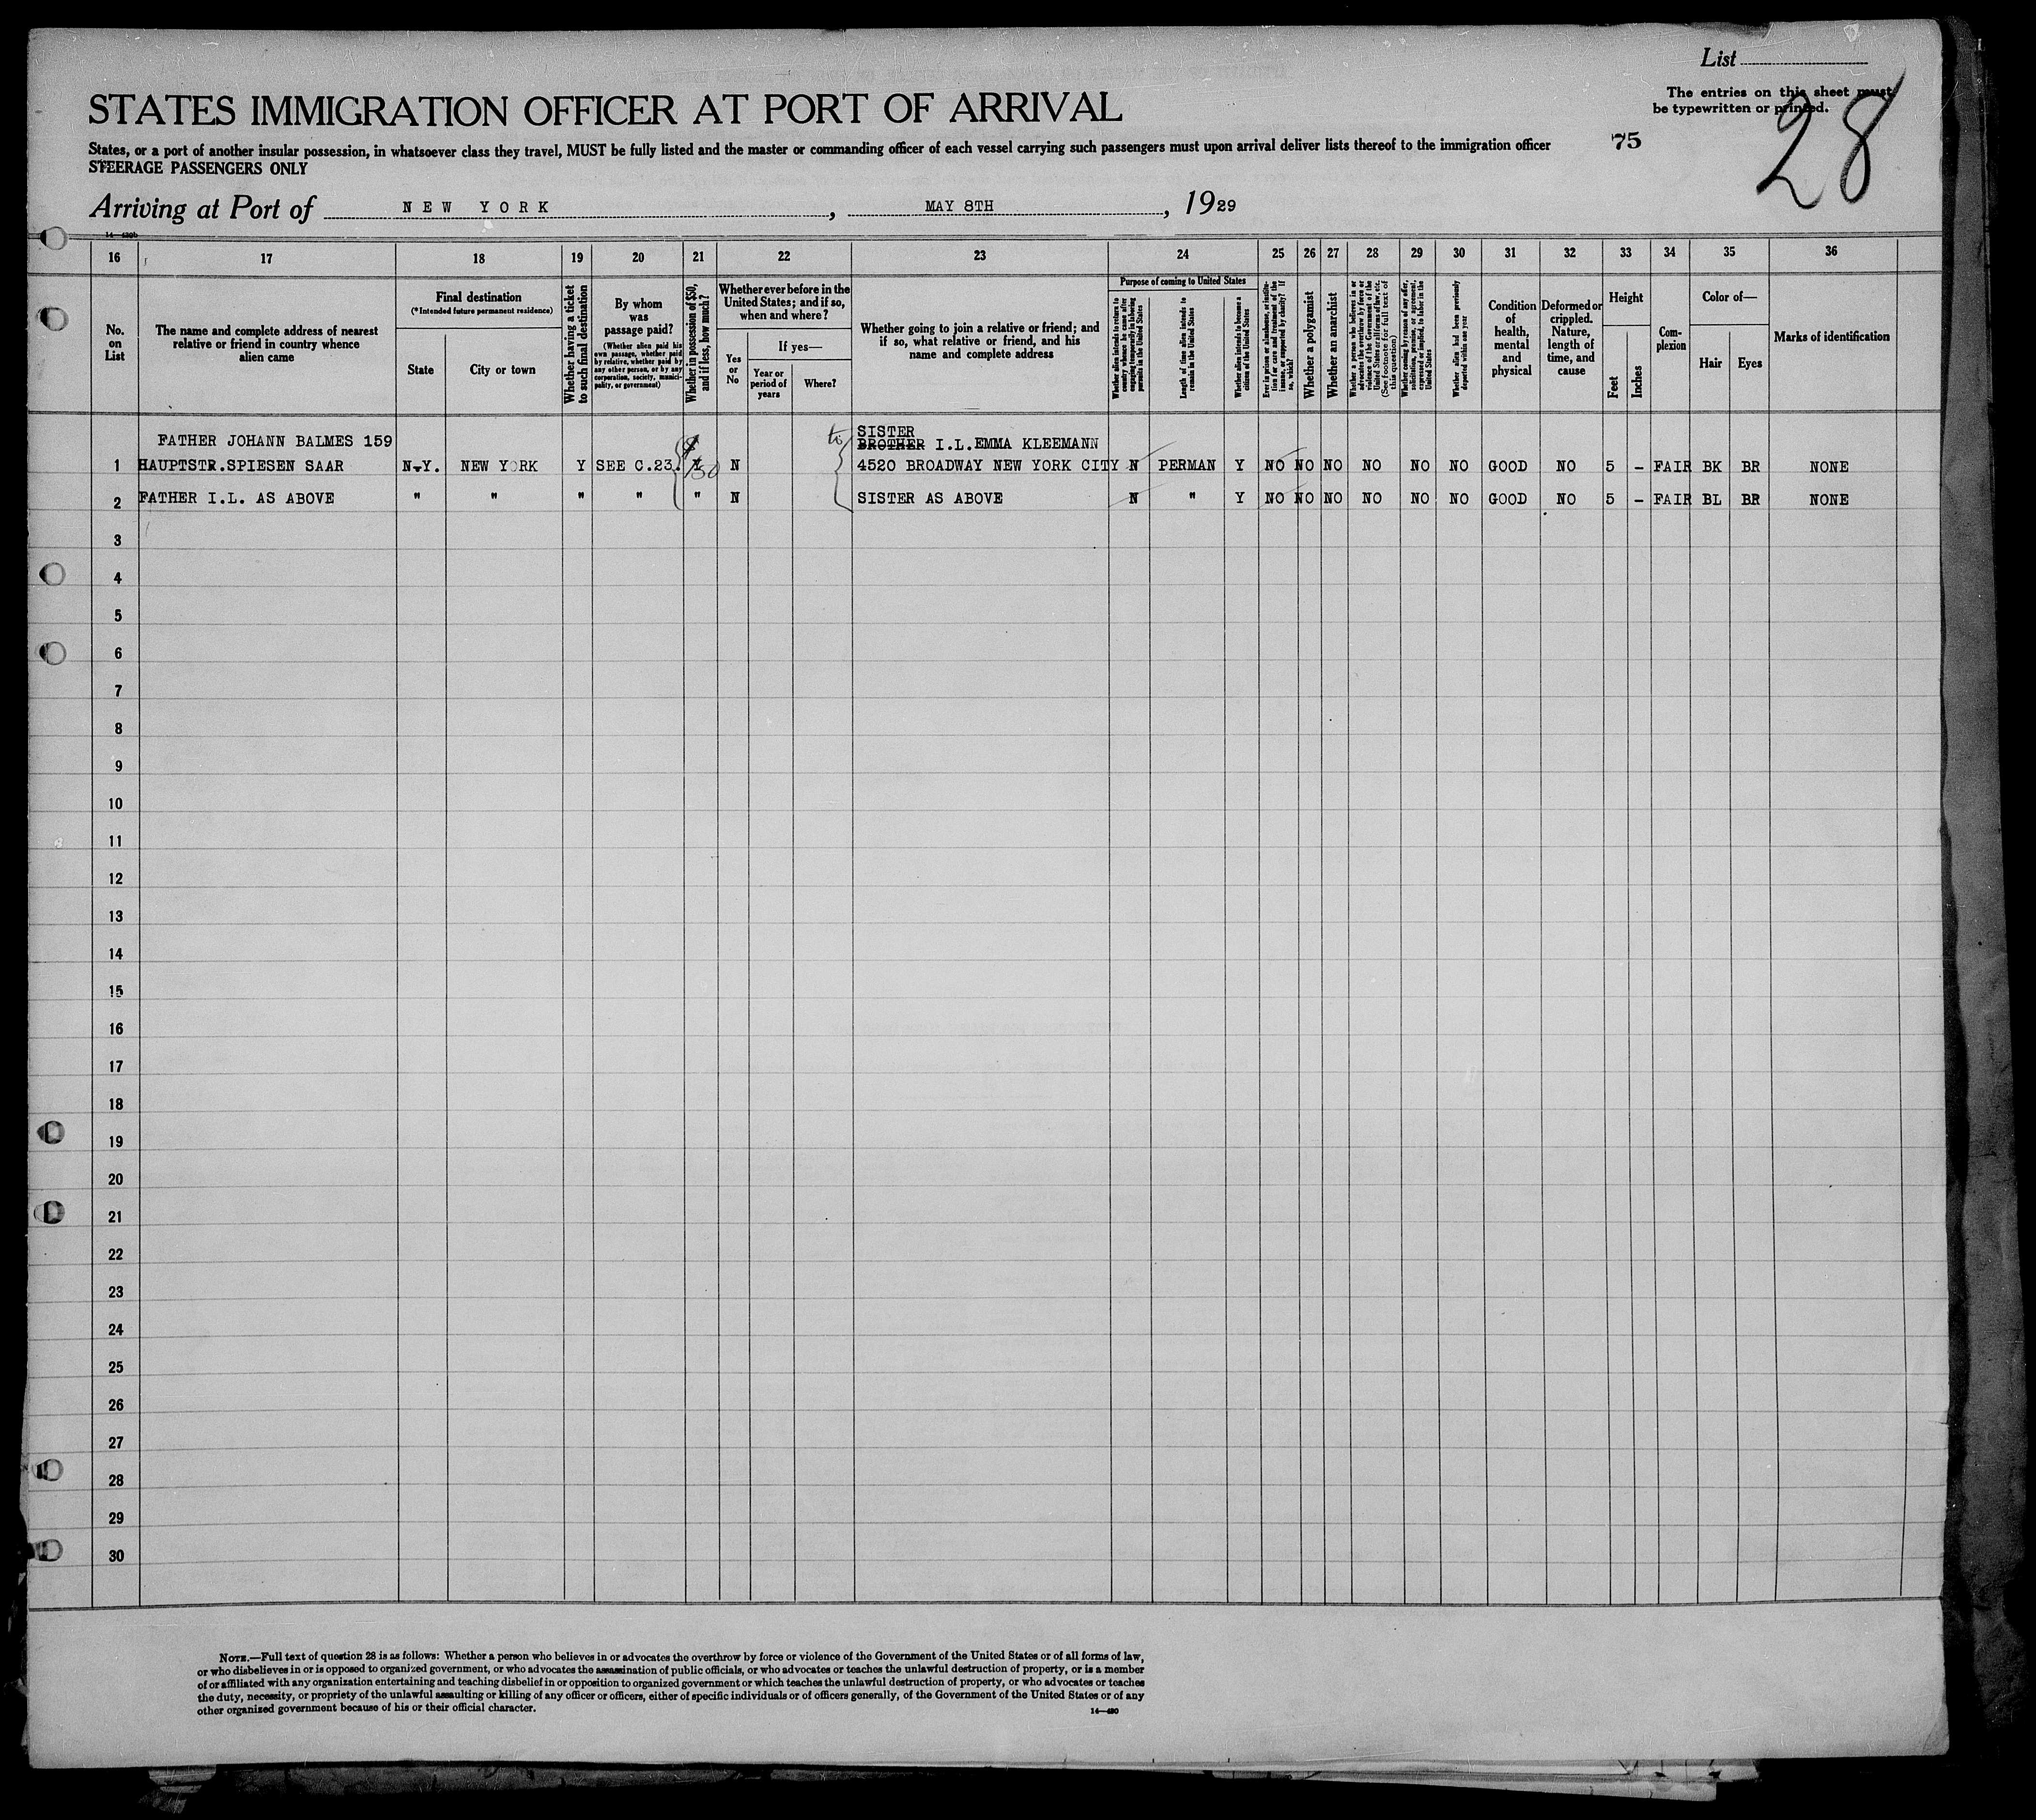 List
The entries on this sheet must
be typewritten or printed.
28
STATES IMMIGRATION OFFICER AT PORT OF ARRIVAL
75
States, or a port of another insular possession, in whatsoever class they travel, MUST be fully listed and the master or commanding officer of each vessel carrying such passengers must upon arrival deliver lists thereof to the immigration officer
STEERAGE PASSENGERS ONLY
Arriving at Port of NEW YORK, MAY 8TH, 1929
14—430b
16 17 18 19 20 21 22 23 24 25 26 27 28 29 30 31 32 33 34 35 36
No. on List
The name and complete address of nearest relative or friend in country whence alien came
Final destination
(*Intended future permanent residence)
State
City or town
Whether having a ticket to such final destination
By whom was passage paid?
(Whether alien paid his own passage, whether paid by relative, whether paid by any other person, or by any corporation, society, municipality, or government)
Whether in possession of $50, and if less, how much?
Whether ever before in the United States; and if so, when and where?
Yes or No
If yes—
Year or period of years
Where?
Whether going to join a relative or friend; and if so, what relative or friend, and his name and complete address
Purpose of coming to United States
Whether alien intends to return to country whence he came after engaging temporarily in laboring pursuits in the United States
Length of time alien intends to remain in the United States
Whether alien intends to become a citizen of the United States
Ever in prison or almshouse, or institution for care and treatment of the insane, or supported by charity? If so, which?
Whether a polygamist
Whether an anarchist
Whether a person who believes in or advocates the overthrow by force or violence of the Government of the United States or all forms of law, etc. (See footnote for full text of this question)
Whether coming by reason of any offer, solicitation, promise, or agreement, expressed or implied, to labor in the United States
Whether alien had been previously deported within one year
Condition of health, mental and physical
Deformed or crippled. Nature, length of time, and cause
Height
Feet
Inches
Complexion
Color of—
Hair
Eyes
Marks of identification
FATHER JOHANN BALMES 159 to SISTER
BROTHER I.L. EMMA KLEEMANN
1 HAUPTSTR.SPIESEN SAAR N.Y. NEW YORK Y SEE C.23. $ 150 N 4520 BROADWAY NEW YORK CITY N PERMAN Y NO NO NO NO NO NO GOOD NO 5 - FAIR BK BR NONE
2 FATHER I.L. AS ABOVE " " " " " N SISTER AS ABOVE N " Y NO NO NO NO NO NO GOOD NO 5 - FAIR BL BR NONE
3
4
5
6
7
8
9
10
11
12
13
14
15
16
17
18
19
20
21
22
23
24
25
26
27
28
29
30
NOTE.—Full text of question 28 is as follows: Whether a person who believes in or advocates the overthrow by force or violence of the Government of the United States or of all forms of law,
or who disbelieves in or is opposed to organized government, or who advocates the assassination of public officials, or who advocates or teaches the unlawful destruction of property, or is a member
of or affiliated with any organization entertaining and teaching disbelief in or opposition to organized government or which teaches the unlawful destruction of property, or who advocates or teaches
the duty, necessity, or propriety of the unlawful assaulting or killing of any officer or officers, either of specific individuals or of officers generally, of the Government of the United States or of any
other organized government because of his or their official character.
14—430